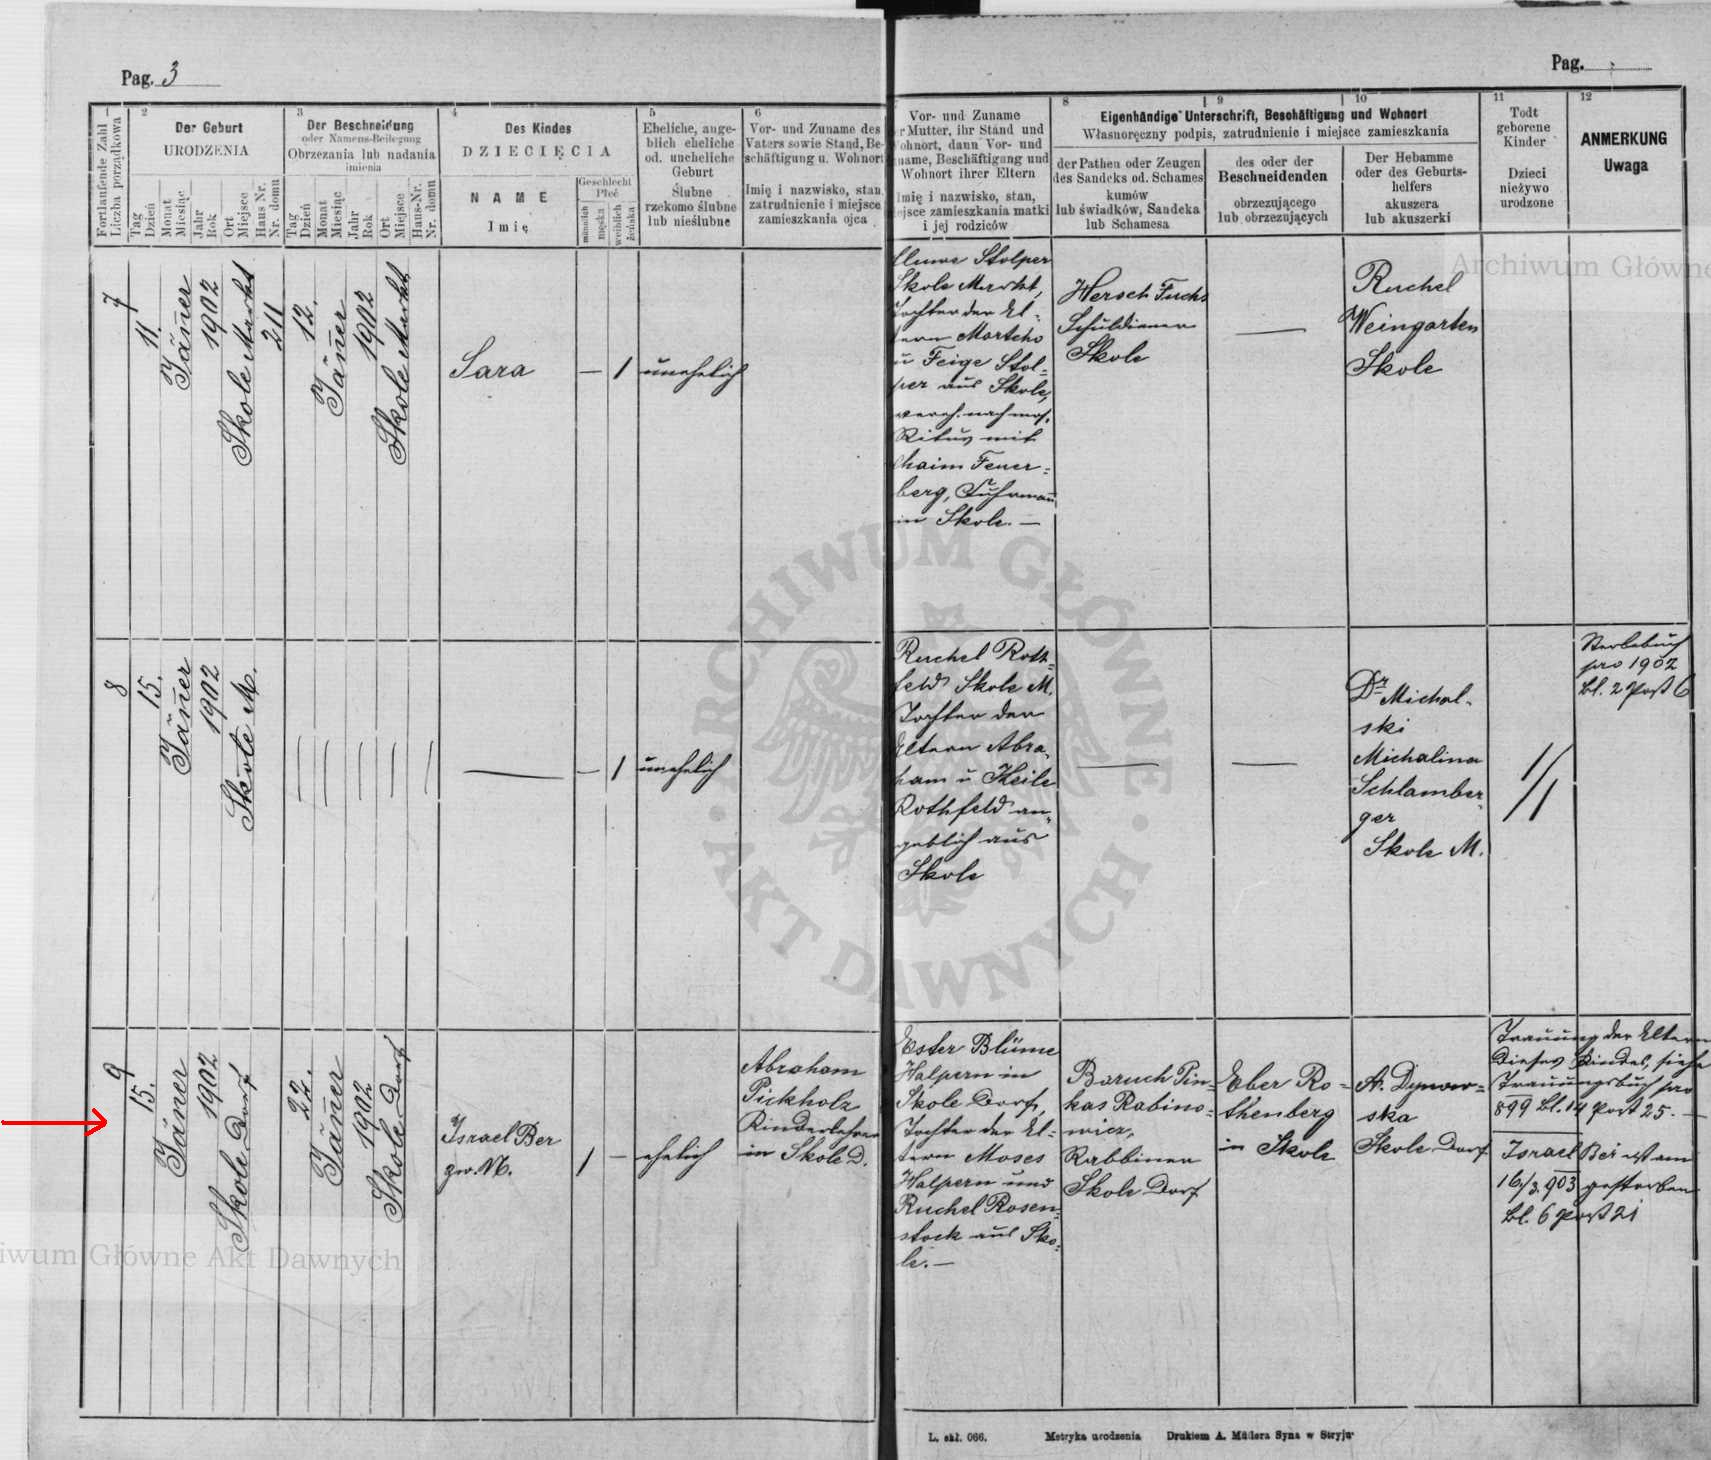 Pag. 3
Pag.
1
Fortlaufende Zahl
Liczba porządkowa
2
Der Geburt
URODZENIA
Tag
Dzień
Monat
Miesiąc
Jahr
Rok
Ort
Miejsce
Haus Nr.
Nr. domu
3
Der Beschneidung
oder Namens-Beilegung
Obrzezania lub nadania
imienia
Tag
Dzień
Monat
Miesiąc
Jahr
Rok
Ort
Miejsce
Haus-Nr.
Nr. domu
4
Des Kindes
DZIECIĘCIA
NAME
Imię
Geschlecht
Płeć
männlich
męska
weiblich
żeńska
5
Eheliche, ange-
blich eheliche
od. uneheliche
Geburt
Ślubne
rzekomo ślubne
lub nieślubne
6
Vor- und Zuname des
Vaters sowie Stand, Be-
schäftigung u. Wohnort
Imię i nazwisko, stan
zatrudnienie i miejsce
zamieszkania ojca
Vor- und Zuname
er Mutter, ihr Stand und
Wohnort, dann Vor- und
name, Beschäftigung und
Wohnort ihrer Eltern
Imię i nazwisko, stan,
ejsce zamieszkania matki
i jej rodziców
8
9
10
Eigenhändige Unterschrift, Beschäftigung und Wohnort
Własnoręczny podpis, zatrudnienie i miejsce zamieszkania
der Pathen oder Zeugen
des Sandeks od. Schames
kumów
lub świadków, Sandeka
lub Schamesa
des oder der
Beschneidenden
obrzezującego
lub obrzezujących
Der Hebamme
oder des Geburts-
helfers
akuszera
lub akuszerki
11
Todt
geborene
Kinder
Dzieci
nieżywo
urodzone
12
ANMERKUNG
Uwaga
7
11.
Jäner
1902
Skole Markt
211
12.
Jäner
1902
Skole Markt
Sara
— 1
unehelich
Stolper
Skole Markt,
Tochter der El-
tern Mortcho
u Feige Stol-
per aus Skole,
vereh. nach mos.
Ritus mit
Chaim Feuer-
berg, Fuhrmann
in Skole. —
Hersch Fuchs
Schuldiener
Skole
—
Ruchel
Weingarten
Skole
8
15.
Jäner
1902
Skole M.
—
— 1
unehelich
Ruchel Roth-
feld Skole M.
Tochter der
Eltern Abra-
ham u Scheile
Rothfeld an-
geblich aus
Skole
—
—
Dr Michal-
ski
Michalina
Schlamber-
ger
Skole M.
1/1
Sterbebuch
pro 1902
Bl. 2 Post 6
9
15.
Jäner
1902
Skole Dorf
22.
Jäner
1902
Skole Dorf
Israel Ber
zw. N.
1 —
ehelich
Abraham
Pickholz
Kinderlehrer
in Skole D.
Ester Blüme
Halpern in
Skole Dorf,
Tochter der El-
tern Moses
Halpern und
Ruchel Rosen-
stock aus Sko-
le. —
Baruch Pin-
kas Rabino-
wicz,
Rabbiner
Skole Dorf
Eber Ro-
thenberg
in Skole
Skole Dorf
Trauung der Eltern
dieses Kindes, siehe
Trauungsbuch pro
899 Bl. 14 Post 25. —
Israel Ber ist am
16/3. 903 gestorben
Bl. 6 Post 21
L. skł. 066.
Metryka urodzenia
Drukiem A. Müllera Syna w Stryju
Archiwum Główne
ARCHIWUM GŁÓWNE
AKT DAWNYCH
iwum Główne Akt Dawnych